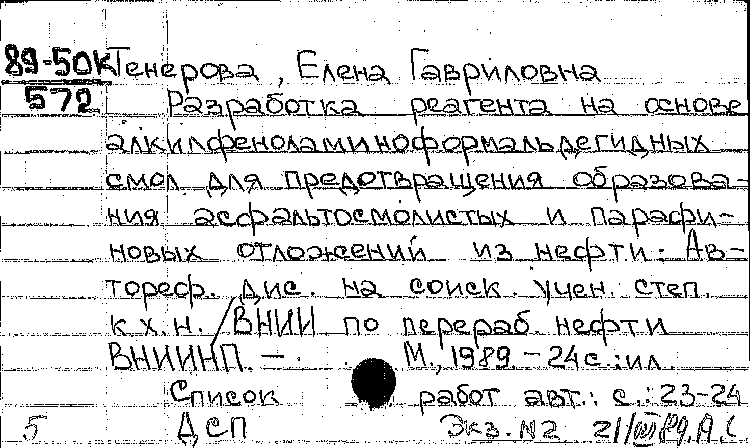 89-50К Тенерова, Елена Гавриловна
572 Разработка реагента на основе
алкилфеноламиноформальдегидных
смол для предотвращения образова-
ния асфальтосмолистых и парафи-
новых отложений из нефти: Ав-
тореф. дис. на соиск. учен. степ.
к.х.н. / ВНИИ по перераб. нефти
ВНИИНП. — . М., 1989. – 24 с.: ил.
Список работ авт.: с.: 23-24
5 ДСП Экз. N2